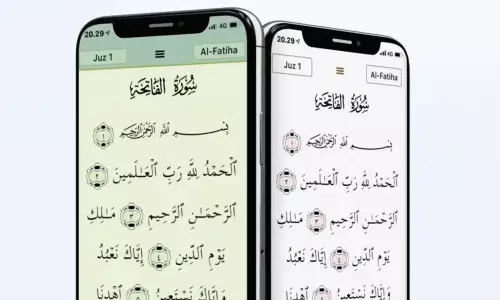 20.29
4G
Juz 1
Al-Fatiha
سُورَةُ الفَاتِحَةِ
بِسْمِ اللَّهِ الرَّحْمَٰنِ الرَّحِيمِ ١
الْحَمْدُ لِلَّهِ رَبِّ الْعَٰلَمِينَ ٢
الرَّحْمَٰنِ الرَّحِيمِ ٣ مَٰلِكِ
يَوْمِ الدِّينِ ٤ إِيَّاكَ نَعْبُدُ
وَإِيَّاكَ نَسْتَعِينُ ٥ اهْدِنَا
20.29
4G
Juz 1
Al-Fatiha
سُورَةُ الفَاتِحَةِ
بِسْمِ اللَّهِ الرَّحْمَٰنِ الرَّحِيمِ ١
الْحَمْدُ لِلَّهِ رَبِّ الْعَٰلَمِينَ ٢
الرَّحْمَٰنِ الرَّحِيمِ ٣ مَٰلِكِ
يَوْمِ الدِّينِ ٤ إِيَّاكَ نَعْبُدُ
وَإِيَّاكَ نَسْتَعِينُ ٥ اهْدِنَا